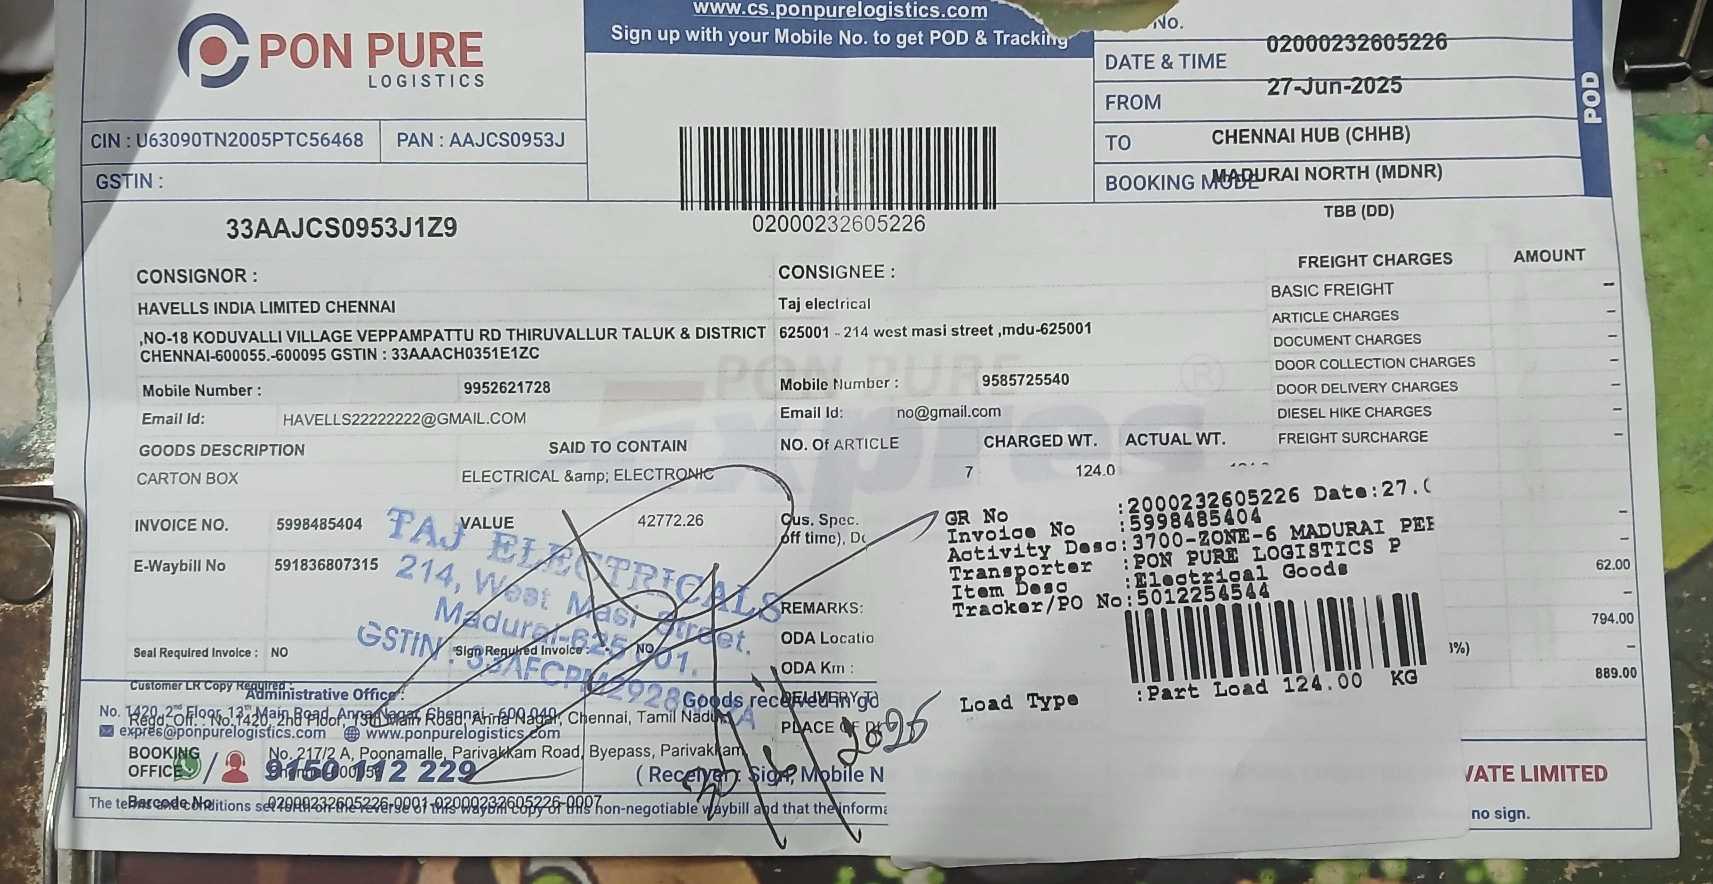 PON PURE
LOGISTICS
www.cs.ponpurelogistics.com
Sign up with your Mobile No. to get POD & Tracking
No.
02000232605226
DATE & TIME
27-Jun-2025
FROM
CHENNAI HUB (CHHB)
TO
MADURAI NORTH (MDNR)
BOOKING MODE
TBB (DD)
POD
CIN : U63090TN2005PTC56468
PAN : AAJCS0953J
GSTIN :
33AAJCS0953J1Z9
02000232605226
CONSIGNOR :
HAVELLS INDIA LIMITED CHENNAI
,NO-18 KODUVALLI VILLAGE VEPPAMPATTU RD THIRUVALLUR TALUK & DISTRICT
CHENNAI-600055.-600095 GSTIN : 33AAACH0351E1ZC
Mobile Number : 9952621728
Email Id: HAVELLS22222222@GMAIL.COM
CONSIGNEE :
Taj electrical
625001 - 214 west masi street ,mdu-625001
Mobile Number : 9585725540
Email Id: no@gmail.com
FREIGHT CHARGES AMOUNT
BASIC FREIGHT –
ARTICLE CHARGES –
DOCUMENT CHARGES –
DOOR COLLECTION CHARGES –
DOOR DELIVERY CHARGES –
DIESEL HIKE CHARGES –
FREIGHT SURCHARGE –
–
–
62.00
–
794.00
%) –
889.00
PON PURE
Expres
®
GOODS DESCRIPTION SAID TO CONTAIN NO. Of ARTICLE CHARGED WT. ACTUAL WT.
CARTON BOX ELECTRICAL &amp; ELECTRONIC 7 124.0
INVOICE NO. 5998485404 VALUE 42772.26 Cus. Spec.
off time),
E-Waybill No 591836807315
REMARKS:
ODA Locatio
ODA Km :
Seal Required Invoice : NO Sign Required Invoice : NO
Customer LR Copy Required :
DELIVERY
PLACE
TAJ ELECTRICALS
214, West Masi Street.
Madurai-625 001.
GSTIN : 33AFCPM2928
GR No :2000232605226 Date:27.
Invoice No :5998485404
Activity Desc:3700-ZONE-6 MADURAI PER
Transporter :PON PURE LOGISTICS P
Item Desc :Electrical Goods
Tracker/PO No:5012254544
Load Type :Part Load 124.00 KG
Administrative Office :
No. 1420, 2nd Floor, 13th Main Road, Anna Nagar, Chennai - 600 040.
Regd. Off. : No.1420, 2nd Floor, 13th Main Road, Anna Nagar, Chennai, Tamil Nadu
expres@ponpurelogistics.com www.ponpurelogistics.com
BOOKING OFFICE No. 217/2 A, Poonamalle, Parivakkam Road, Byepass, Parivakkam,
/ 9150 112 229
Goods received in go
( Receiver : Sign, Mobile N
2025
VATE LIMITED
no sign.
Barcode No 02000232605226-0001-02000232605226-0007
The terms and conditions set forth on the reverse of this waybill copy of this non-negotiable waybill and that the informa